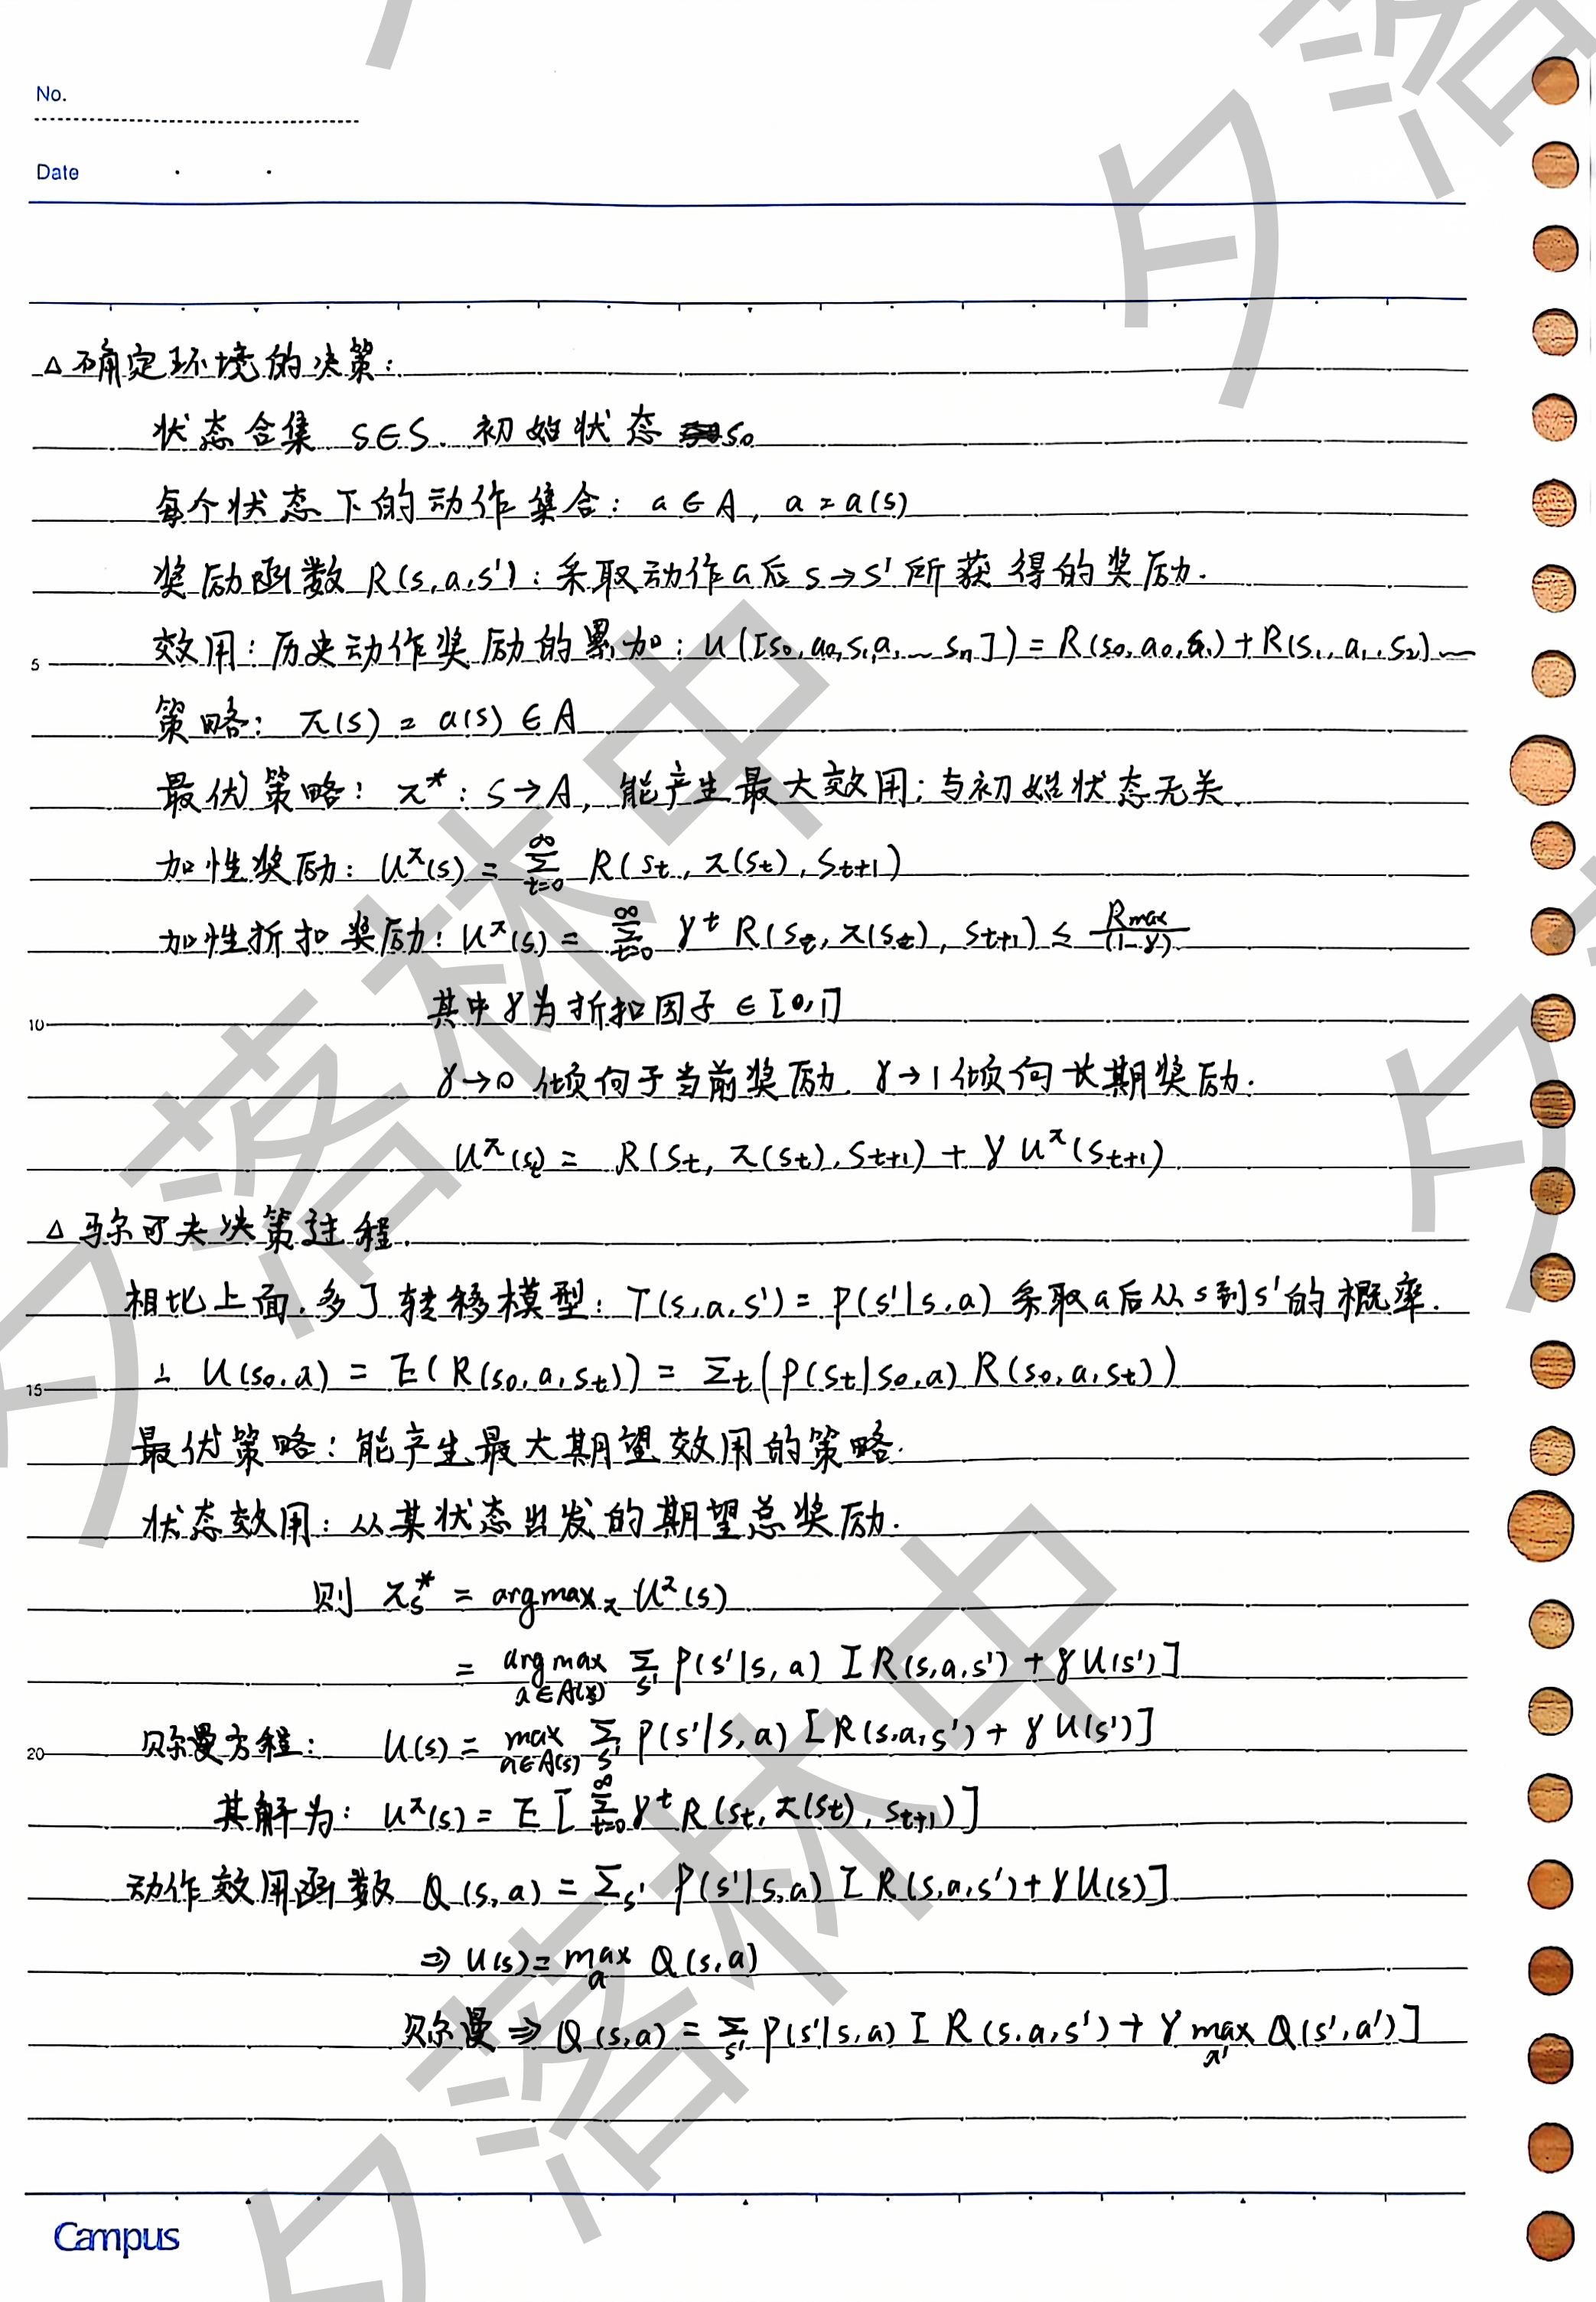 No.
Date
△ 确定环境的决策:
状态合集 s∈S. 初始状态 s₀
每个状态下的动作集合: a∈A, a=a(s)
奖励函数 R(s,a,s'): 采取动作a后 s→s' 所获得的奖励.
5 效用: 历史动作奖励的累加: U([s₀,a₀,s₁,a₁…sₙ])=R(s₀,a₀,s₁)+R(s₁,a₁,s₂)…
策略: π(s) = a(s) ∈ A
最优策略: π*: S→A, 能产生最大效用; 与初始状态无关.
加性奖励: U^π(s) = ∑_{t=0}^∞ R(s_t, π(s_t), s_{t+1})
加性折扣奖励: U^π(s) = ∑_{t=0}^∞ γ^t R(s_t, π(s_t), s_{t+1}) ≤ R_max/(1-γ)
10 其中γ为折扣因子 ∈ [0,1]
γ→0 倾向于当前奖励. γ→1 倾向长期奖励.
U^π(s_t) = R(s_t, π(s_t), s_{t+1}) + γ U^π(s_{t+1})
△ 马尔可夫决策过程.
相比上面,多了转移模型: T(s,a,s') = P(s'|s,a) 采取a后从s到s'的概率.
15 ∴ U(s₀,a) = E(R(s₀,a,s_t)) = ∑_t(P(s_t|s₀,a) R(s₀,a,s_t))
最优策略: 能产生最大期望效用的策略.
状态效用: 从某状态出发的期望总奖励.
则 π_s^* = argmax_π U^π(s)
= argmax_{a∈A(s)} ∑_{s'} P(s'|s,a) [R(s,a,s') + γU(s')]
20 贝尔曼方程: U(s) = max_{a∈A(s)} ∑_{s'} P(s'|s,a) [R(s,a,s') + γU(s')]
其解为: U^π(s) = E[∑_{t=0}^∞ γ^t R(s_t, π(s_t), s_{t+1})]
动作效用函数 Q(s,a) = ∑_{s'} P(s'|s,a) [R(s,a,s')+γU(s)]
⇒ U(s) = max_a Q(s,a)
贝尔曼 ⇒ Q(s,a) = ∑_{s'} P(s'|s,a) [R(s,a,s') + γ max_{a'} Q(s',a')]
Campus
夕落林中
夕落林中
夕落
夕